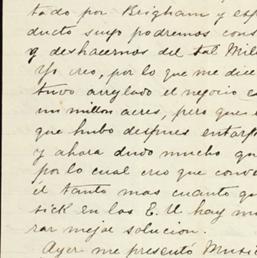 tado por Brigham y esp
ducto suyo podremos cons
y deshacernos del tal Mil
Yo creo, por lo que me dice
tuvo arreglado el negocio e
un millon acres, pero que
que hubo despues entorp
y ahora dudo mucho qu
por lo cual creo que conv
el tanto mas cuanto qu
sick en los E. U. hay mu
rar mejor solucion.
Ayer me presentó Music